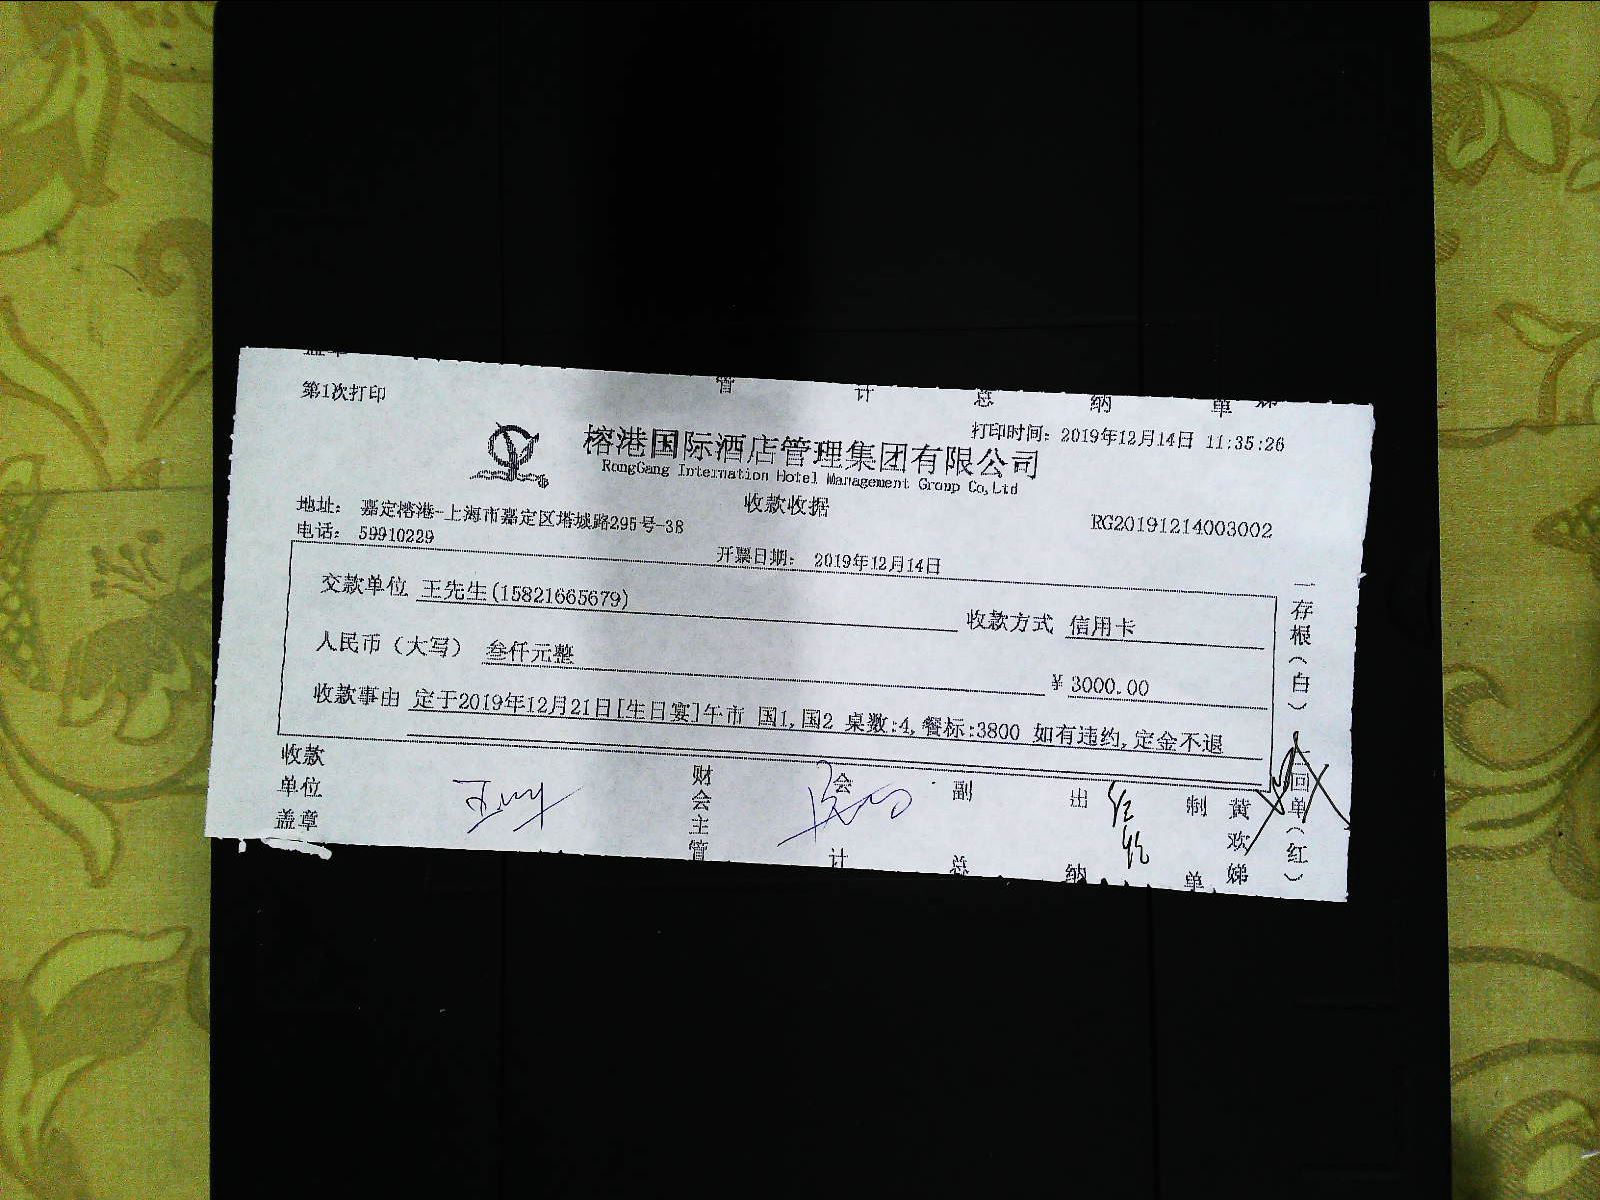 第1次打印
打印时间: 2019年12月14日 11:35:26
榕港国际酒店管理集团有限公司
RongGang Internation Hotel Management Group Co,Ltd
收款收据
地址: 嘉定榕港-上海市嘉定区塔城路295号-38
RG20191214003002
电话: 59910229
开票日期: 2019年12月14日
交款单位 王先生(15821665679)
收款方式 信用卡
人民币（大写） 叁仟元整
¥ 3000.00
收款事由 定于2019年12月21日[生日宴]午市 国1,国2 桌数:4,餐标:3800 如有违约,定金不退
收款单位盖章
财会主管
会计
副总
出纳
制单
黄欢娣
一存根(白)
二回单(红)